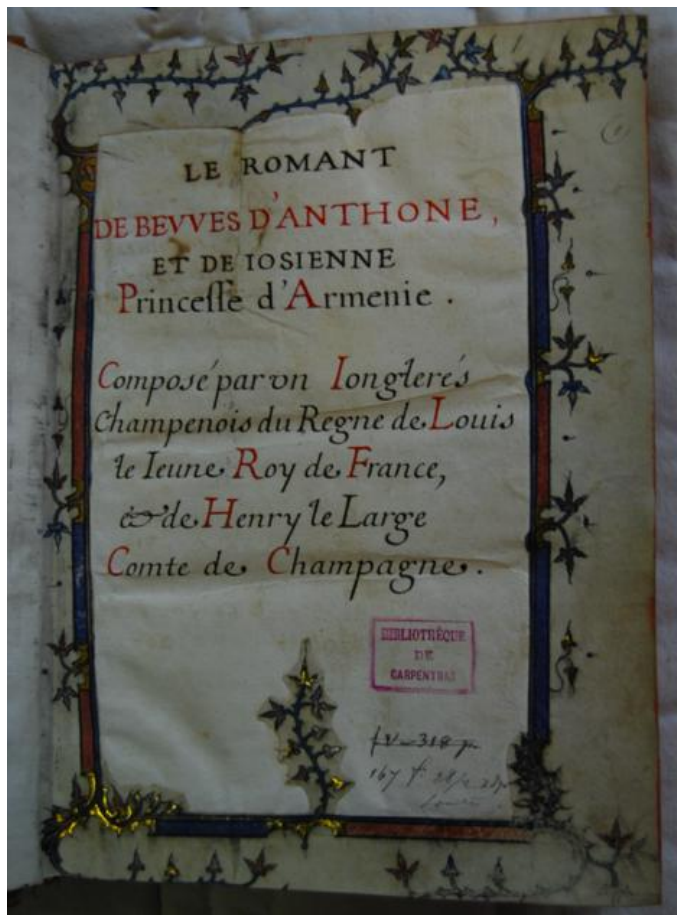 LE ROMANT
DE BEVVES D'ANTHONE,
ET DE IOSIENNE
Princesse d'Armenie .
Composé par vn Ionglerés
Champenois du Regne de Louis
le Ieune Roy de France,
& de Henry le Large
Comte de Champagne .
BIBLIOTHÈQUE
DE
CARPENTRAS
167 f.